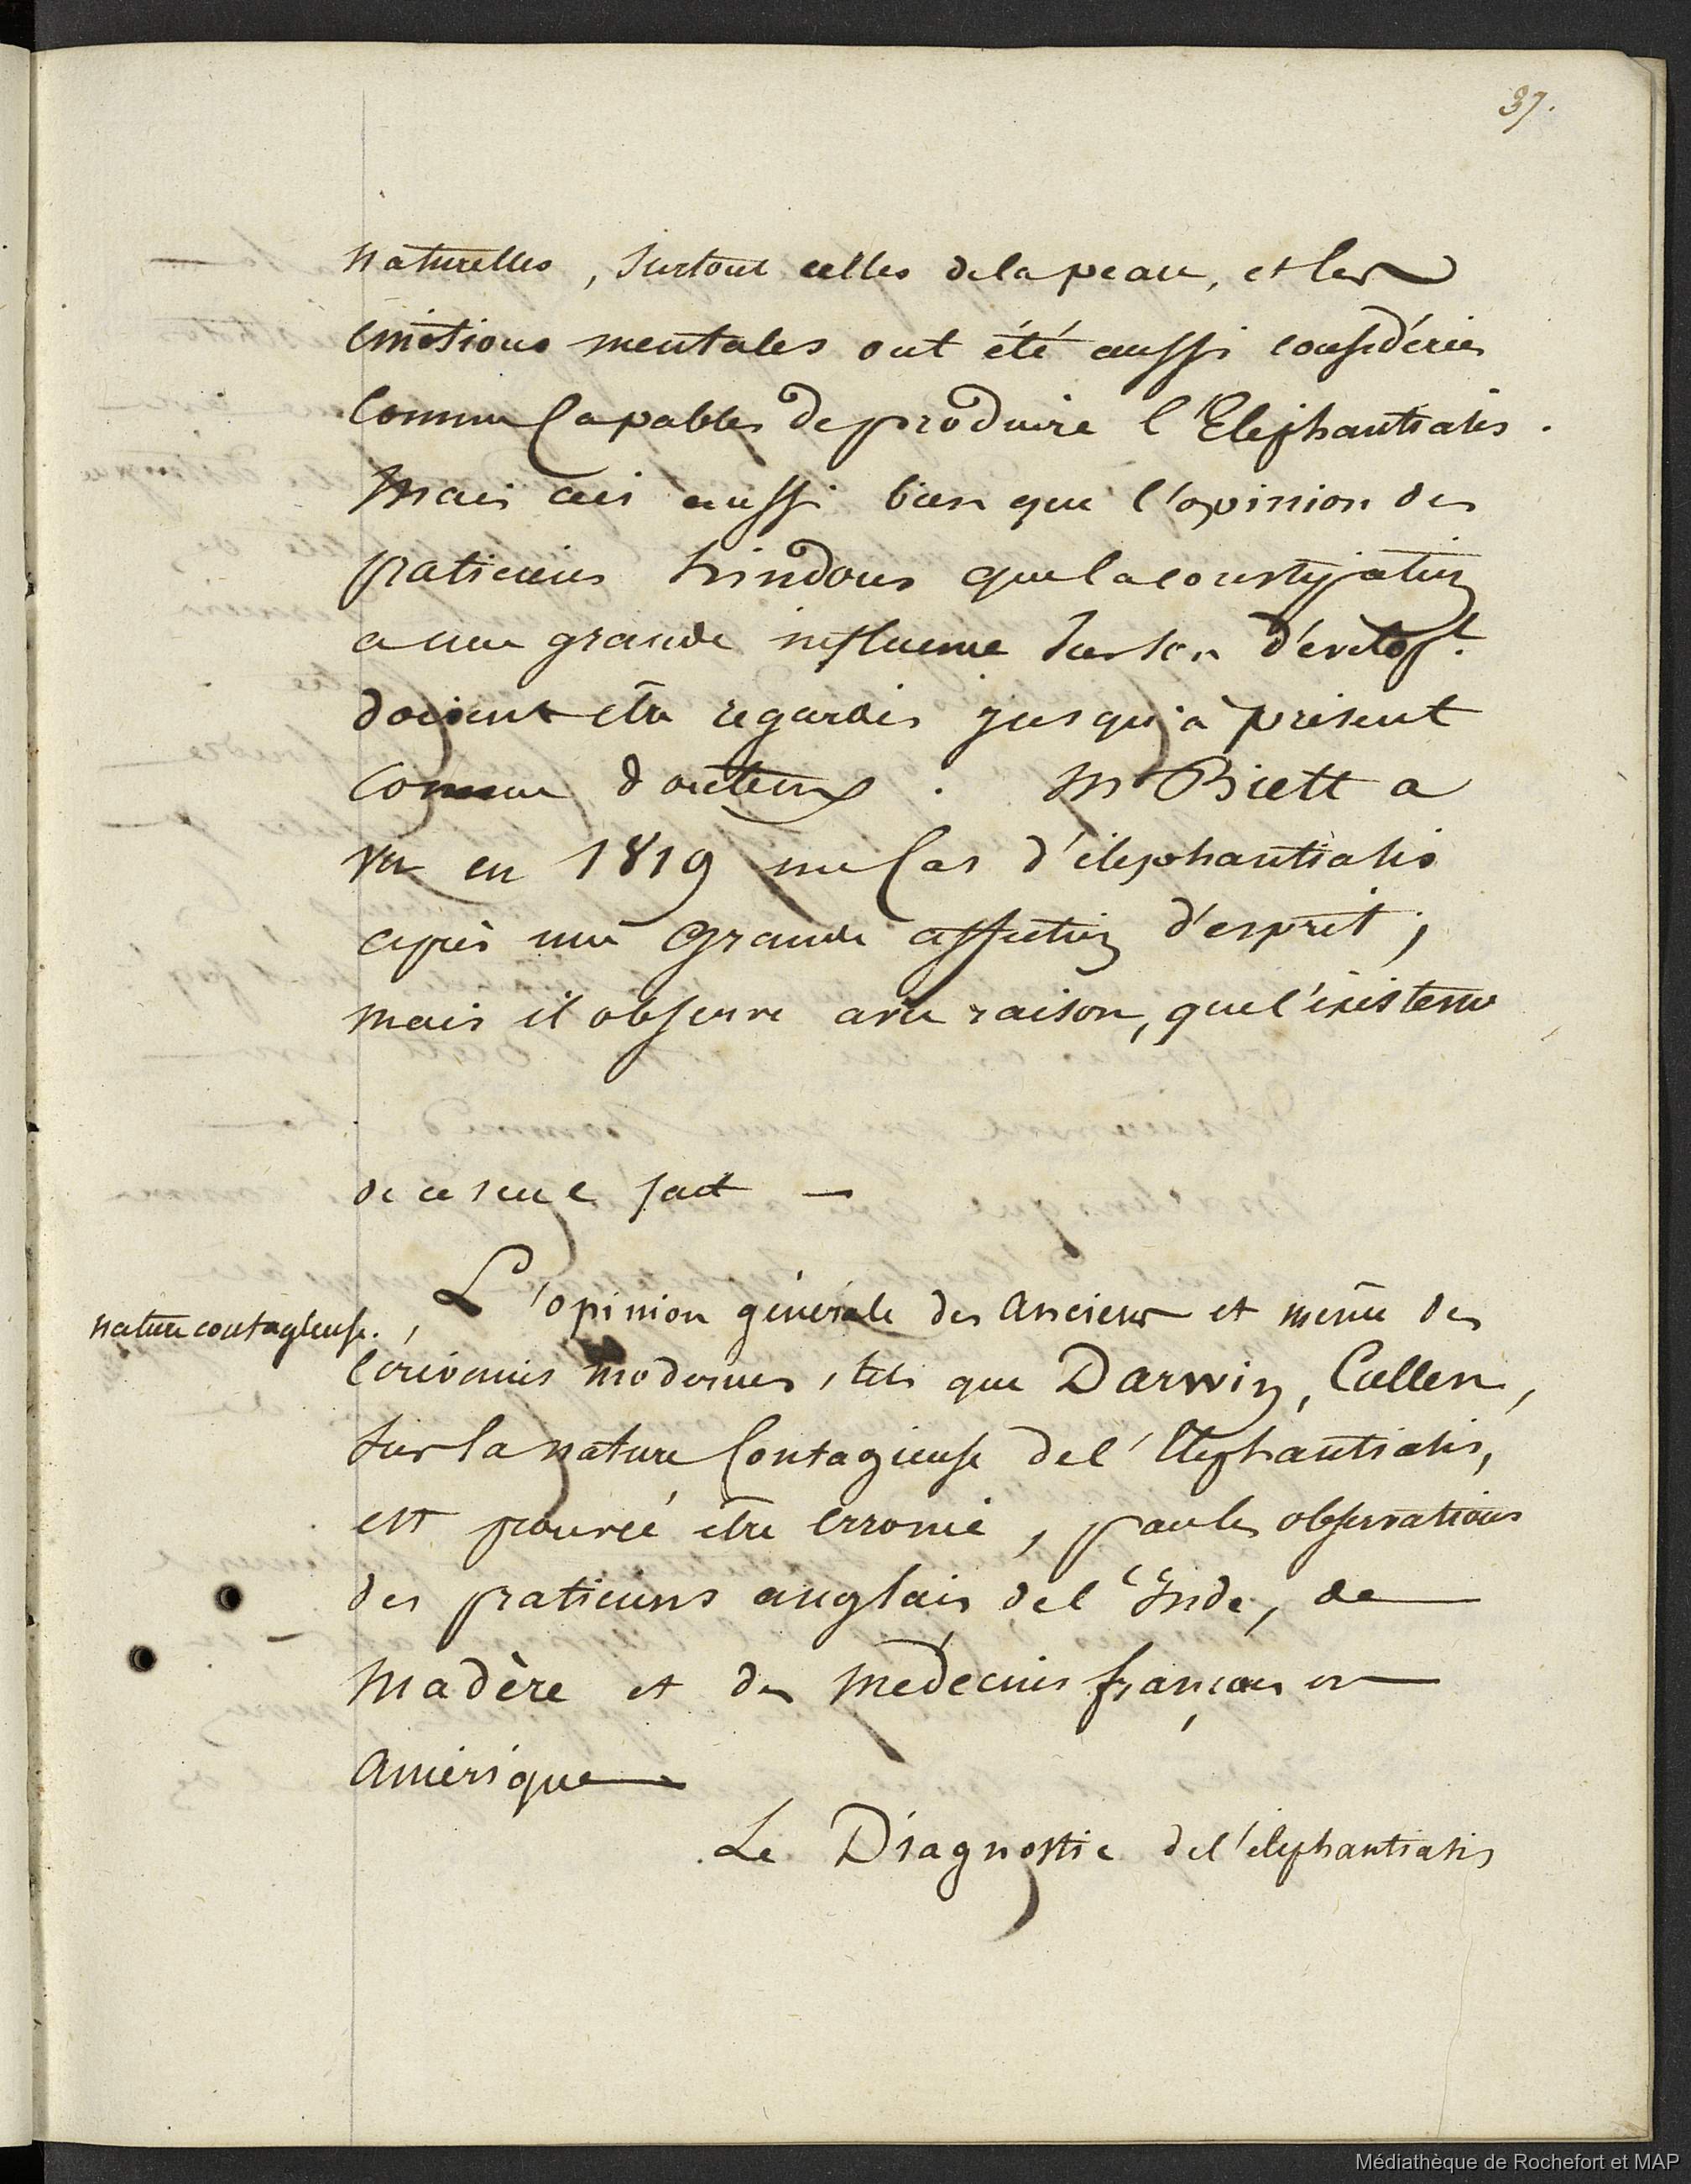 37.
naturelles, surtout celles de la peau, et les
émotions mentales ont été aussi considérées
comme capables de produire l'Elephantiasis.
Mais ceci aussi bien que l'opinion des
praticiens hindous que la constipation
a une grande influence sur son dévelop.t
doivent être regardés jusqu'à présent
comme douteux. Mr Biett a
vu en 1819 un cas d'élephantiasis
après une grande affection d'esprit;
mais il observe avec raison, que l'existence
de ce seul fait —
L'opinion générale des anciens et même des
nature contagieuse.
écrivains modernes, tels que Darwin, Cullen,
sur la nature Contagieuse de l'Elephantiasis,
est prouvée être erronée, par les observations
des praticiens anglais de l'Inde, de
Madère et des médecins français en
amérique
Le Diagnostic de l'élephantiasis
Médiathèque de Rochefort et MAP